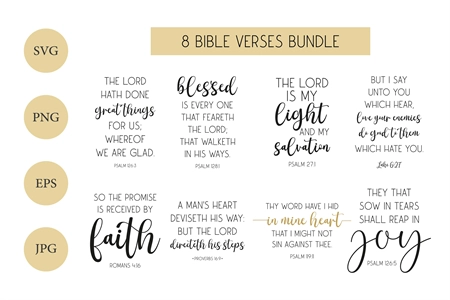 8 BIBLE VERSES BUNDLE
SVG
PNG
EPS
JPG
THE LORD
HATH DONE
great things
FOR US;
WHEREOF
WE ARE GLAD.
PSALM 126:3
blessed
IS EVERY ONE
THAT FEARETH
THE LORD;
THAT WALKETH
IN HIS WAYS.
PSALM 128:1
THE LORD
IS MY
light
AND MY
salvation
PSALM 27:1
BUT I SAY
UNTO YOU
WHICH HEAR,
Love your enemies
do good to them
WHICH HATE YOU.
Luke 6:27
SO THE PROMISE
IS RECEIVED BY
faith
ROMANS 4:16
A MAN'S HEART
DEVISETH HIS WAY:
BUT THE LORD
directeth his steps
~PROVERBS 16:9~
THY WORD HAVE I HID
in mine heart
THAT I MIGHT NOT
SIN AGAINST THEE.
PSALM 119:11
THEY THAT
SOW IN TEARS
SHALL REAP IN
joy
PSALM 126:5